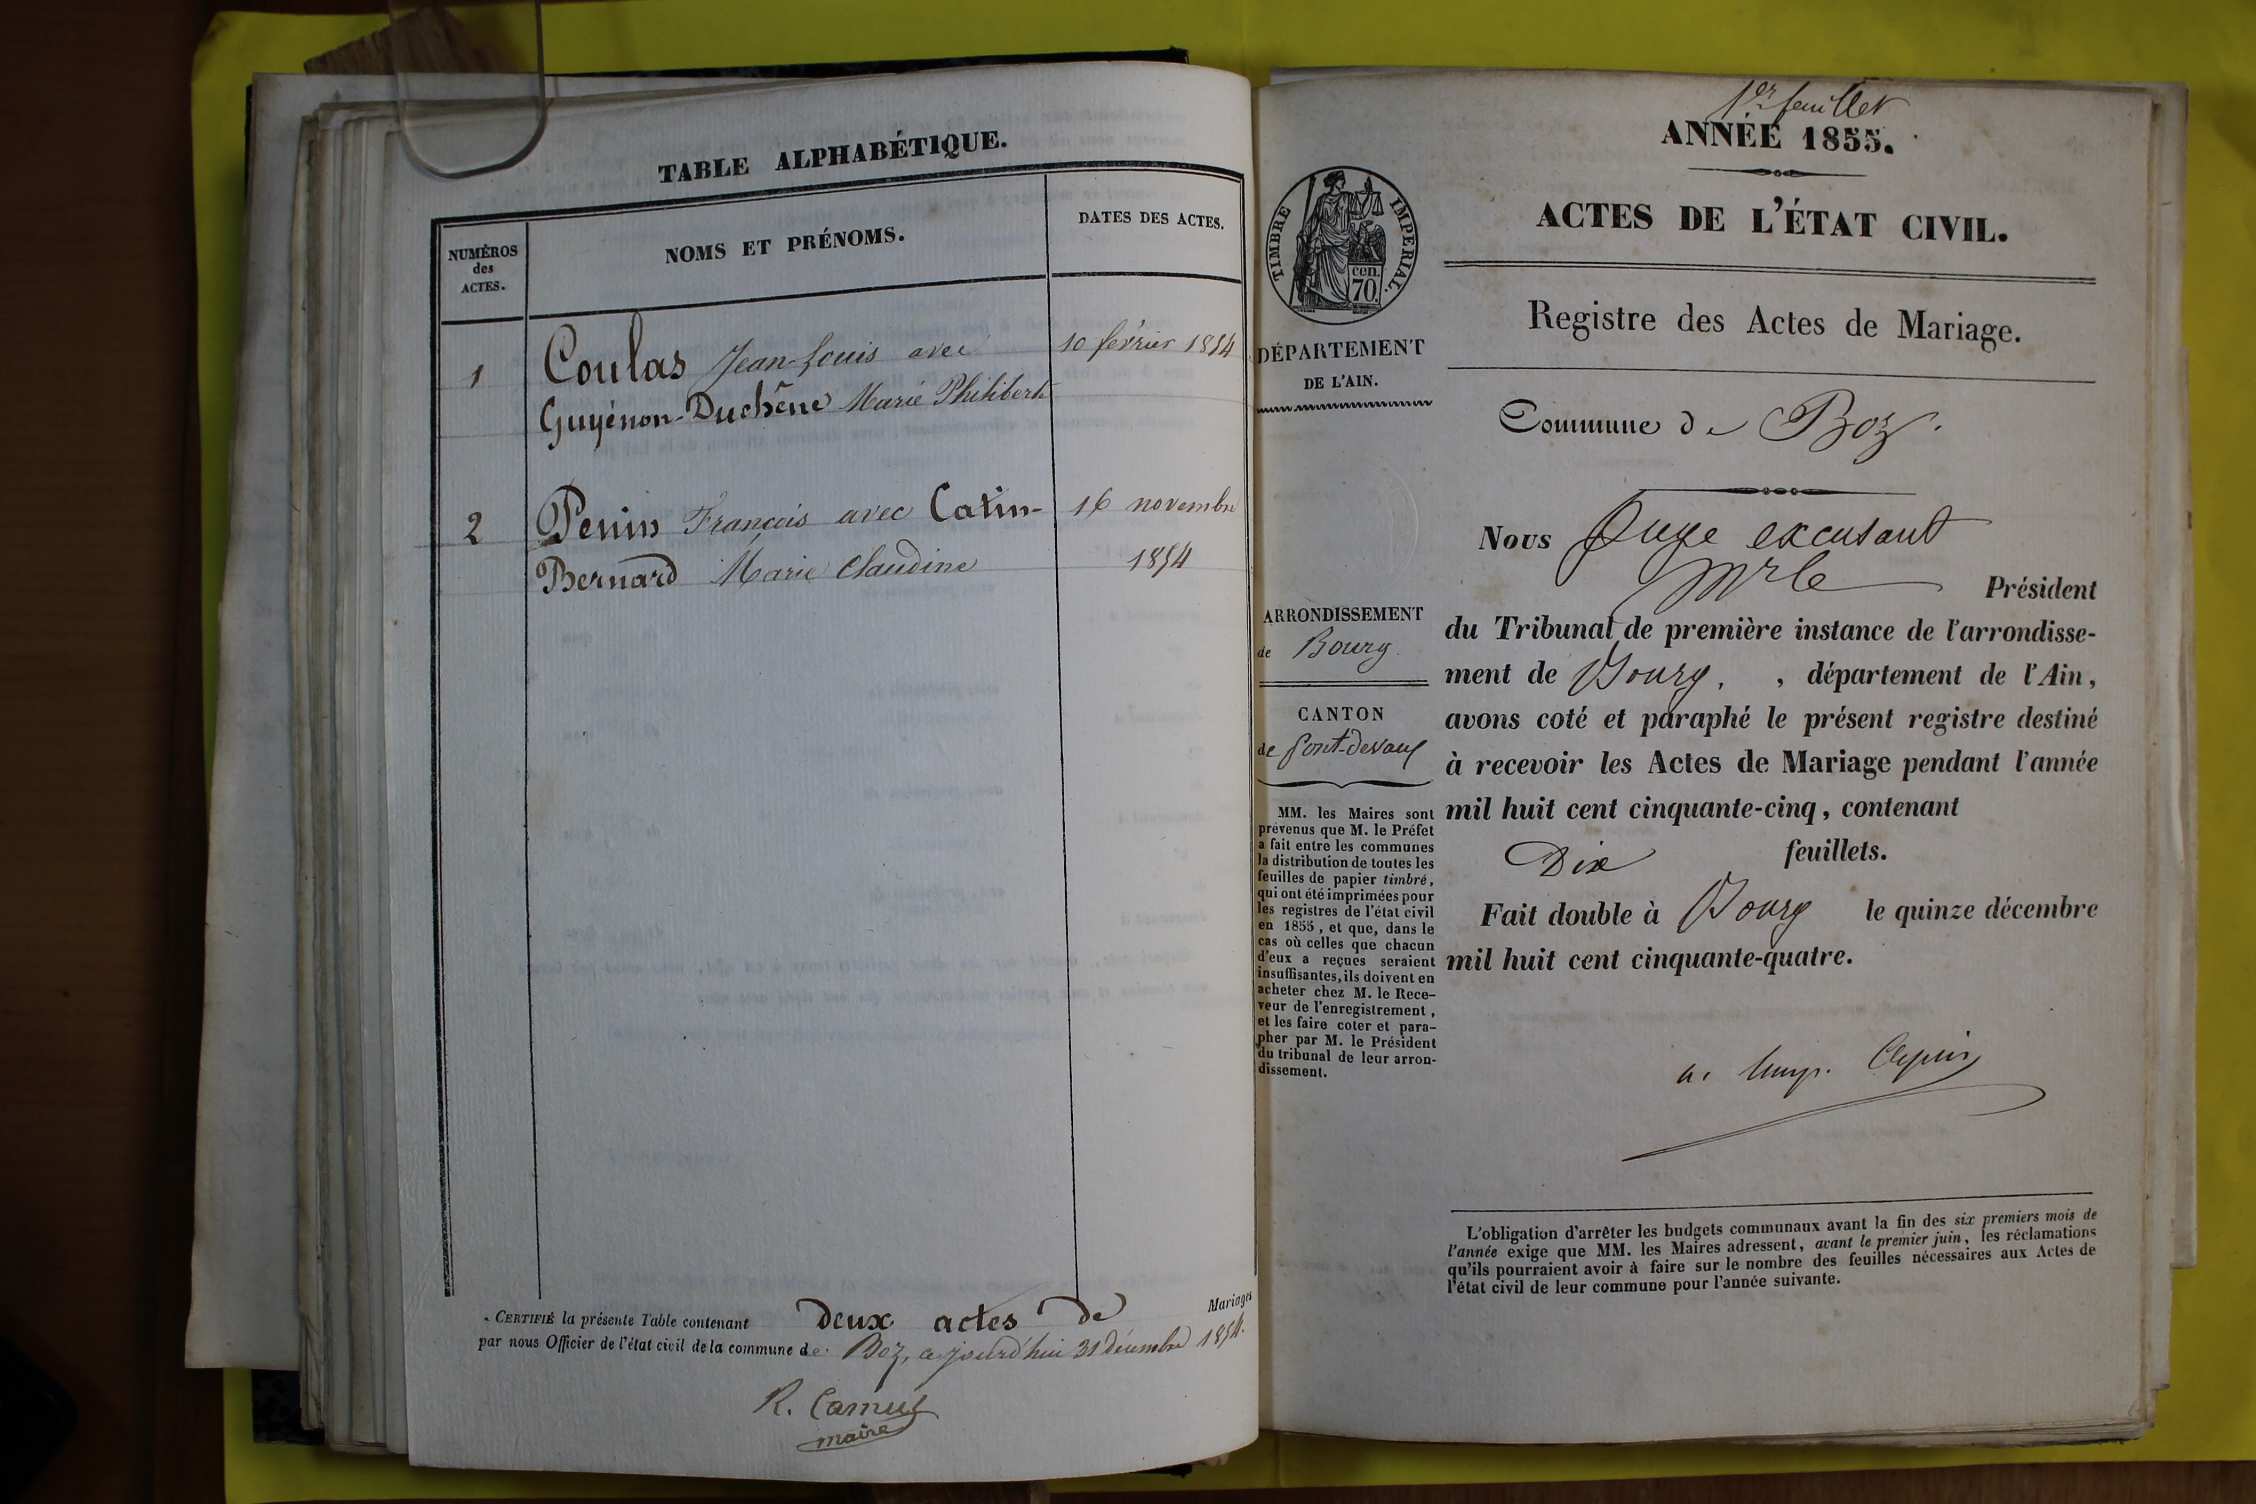 TABLE ALPHABÉTIQUE.
NUMÉROS
des
ACTES.
NOMS ET PRÉNOMS.
DATES DES ACTES.
1
Coulas Jean-Louis avec
10 février 1854
Guyénon-Duchêne Marie Philiberte
2
Penin François avec Catin-
16 novembre
Bernard Marie Claudine
1854
CERTIFIÉ la présente Table contenant deux actes de Mariages
par nous Officier de l'état civil de la commune de Boz, ce jourd'hui 31 décembre 1854.
R. Camus
maire
1er feuillet
ANNÉE 1855.
ACTES DE L'ÉTAT CIVIL.
TIMBRE IMPERIAL.
cen.
70.
Registre des Actes de Mariage.
DÉPARTEMENT
DE L'AIN.
Commune de Boz.
Nous Juge excusant
Mr le Président
ARRONDISSEMENT
de Bourg.
CANTON
de Pont-devaux
MM. les Maires sont
prévenus que M. le Préfet
a fait entre les communes
la distribution de toutes les
feuilles de papier timbré,
qui ont été imprimées pour
les registres de l'état civil
en 1855, et que, dans le
cas où celles que chacun
d'eux a reçues seraient
insuffisantes, ils doivent en
acheter chez M. le Rece-
veur de l'enregistrement,
et les faire coter et para-
pher par M. le Président
du tribunal de leur arron-
dissement.
du Tribunal de première instance de l'arrondisse-
ment de Bourg. , département de l'Ain,
avons coté et paraphé le présent registre destiné
à recevoir les Actes de Mariage pendant l'année
mil huit cent cinquante-cinq, contenant
Dix feuillets.
Fait double à Bourg le quinze décembre
mil huit cent cinquante-quatre.
L'obligation d'arrêter les budgets communaux avant la fin des six premiers mois de
l'année exige que MM. les Maires adressent, avant le premier juin, les réclamations
qu'ils pourraient avoir à faire sur le nombre des feuilles nécessaires aux Actes de
l'état civil de leur commune pour l'année suivante.